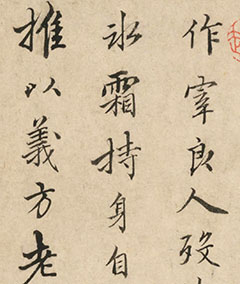 作宰良人歿
冰霜持身自
推以義方老